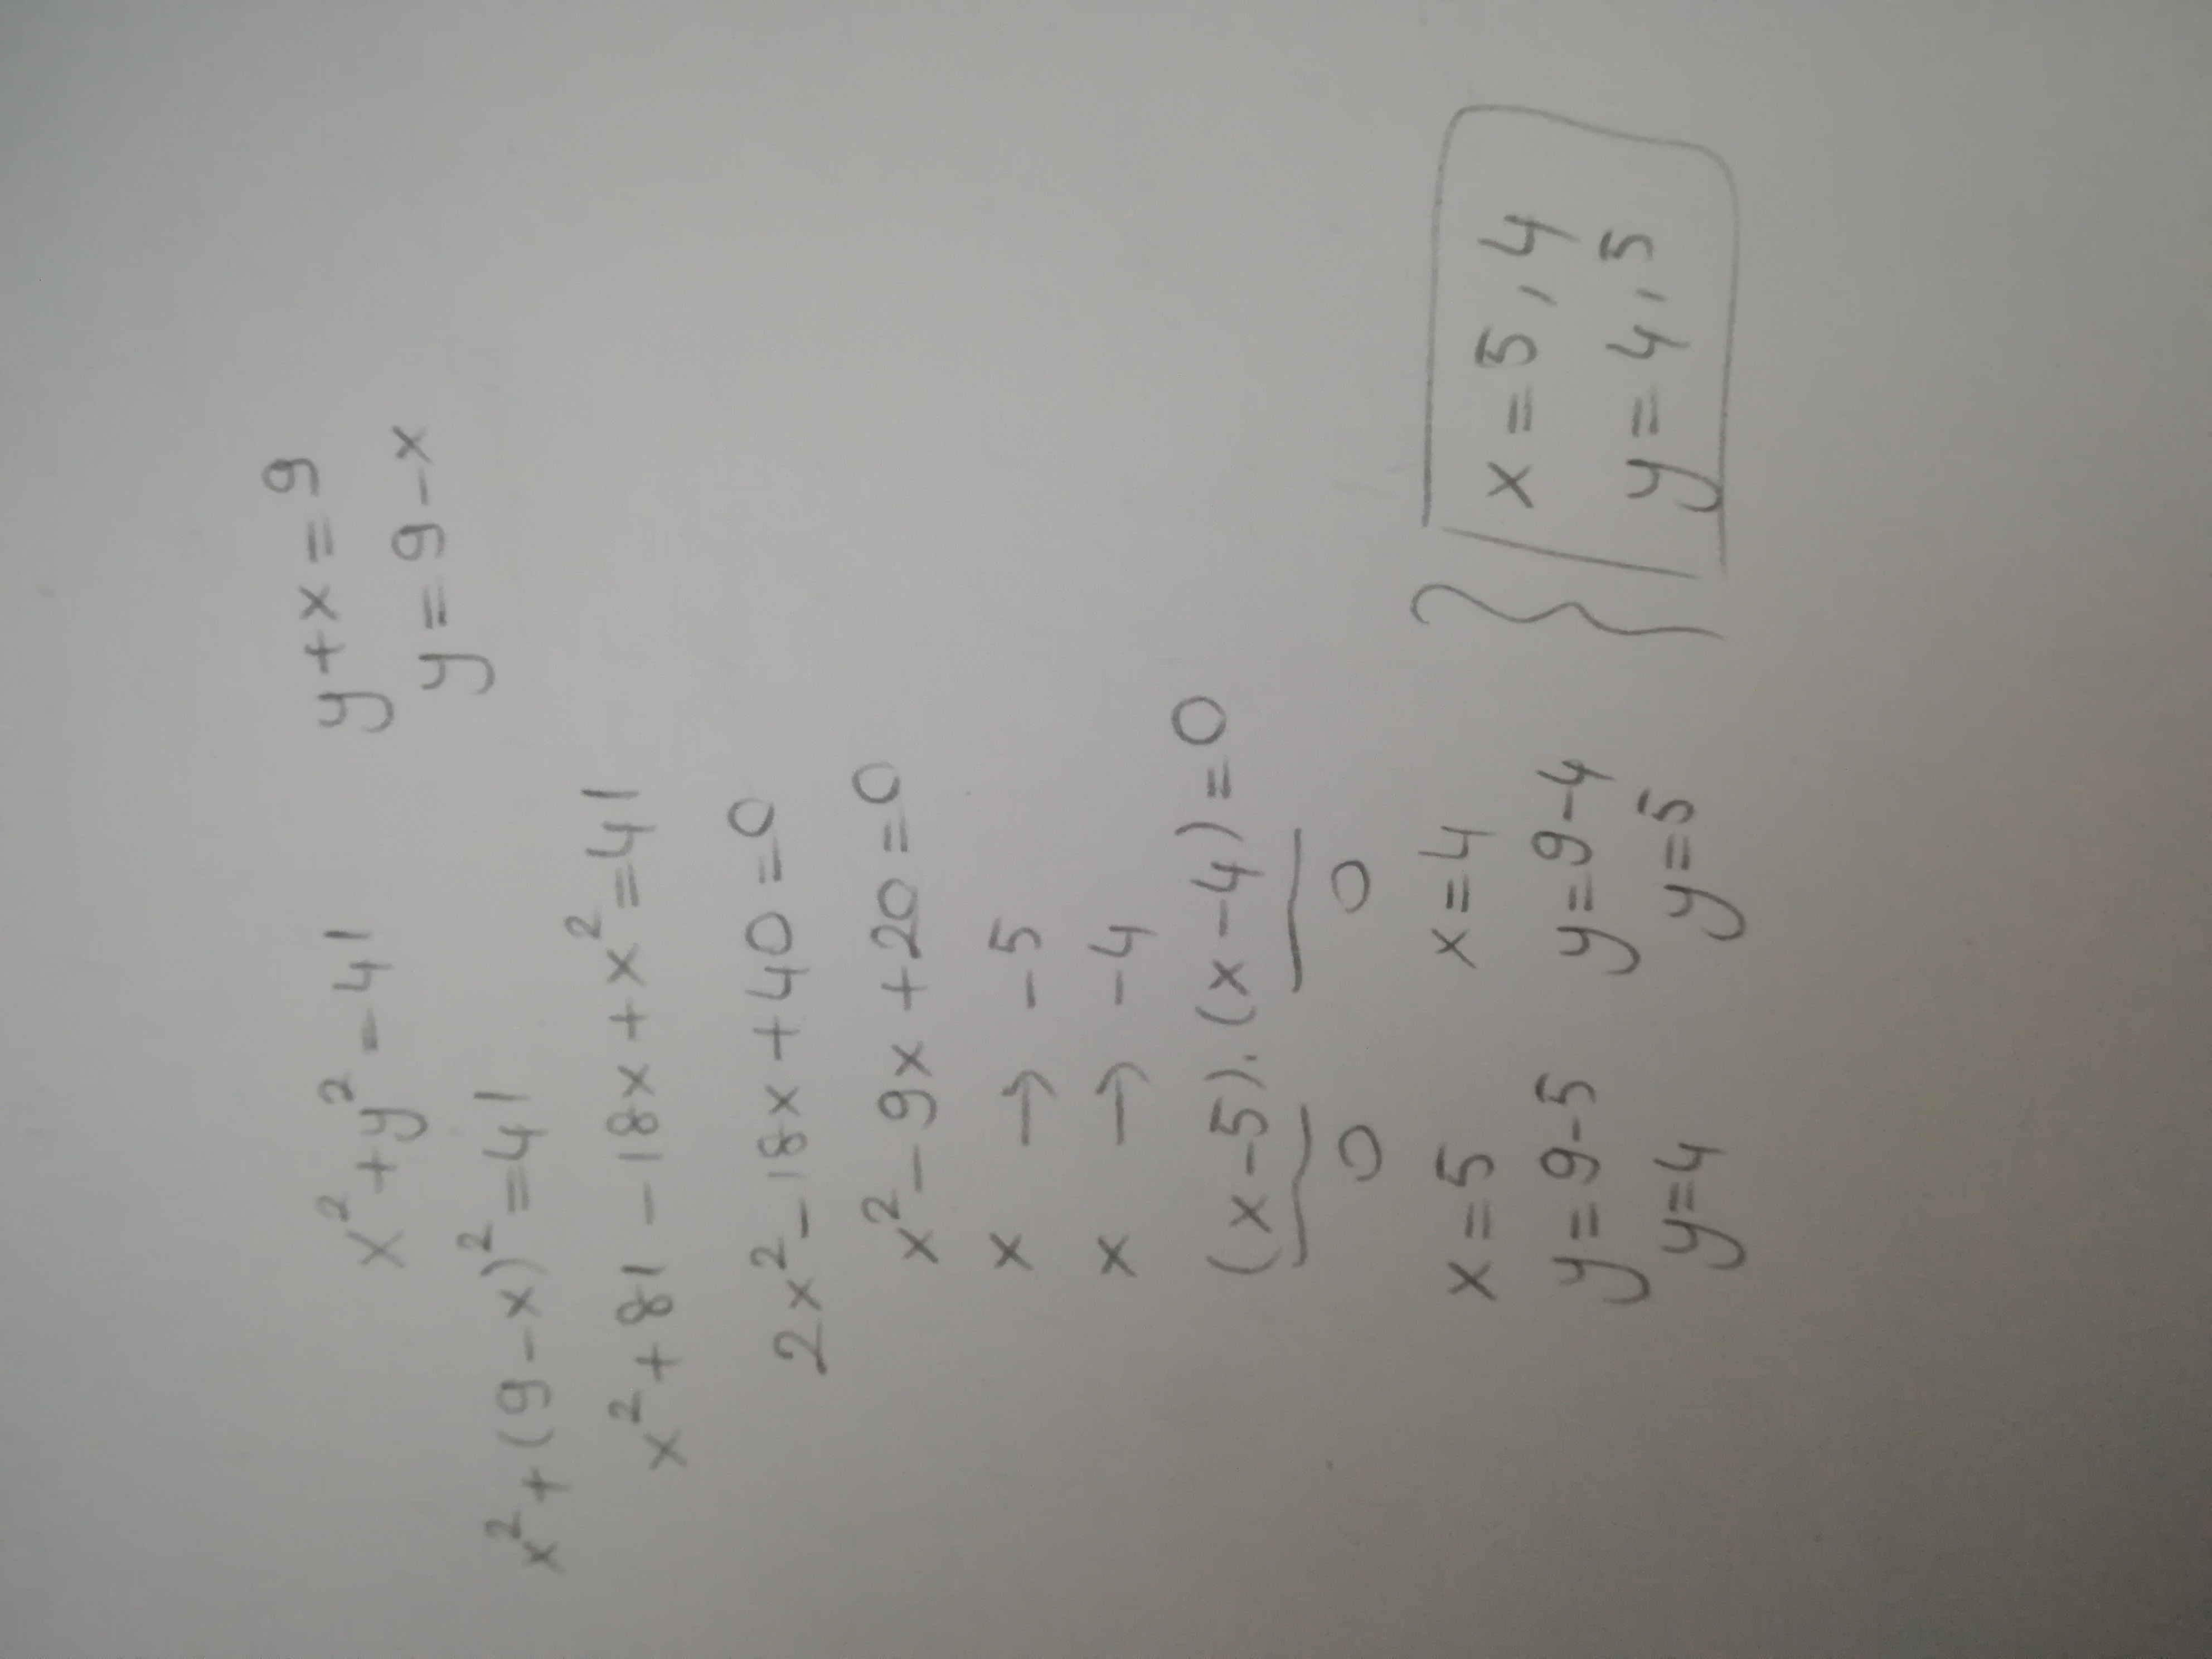 x² + y² = 41 y + x = 9
y = 9 - x
x² + (9 - x)² = 41
x² + 81 - 18x + x² = 41
2x² - 18x + 40 = 0
x² - 9x + 20 = 0
x → -5
x → -4
(x - 5).(x - 4) = 0
0 0
x = 5 x = 4 } x = 5, 4
y = 9 - 5 y = 9 - 4 y = 4, 5
y = 4 y = 5